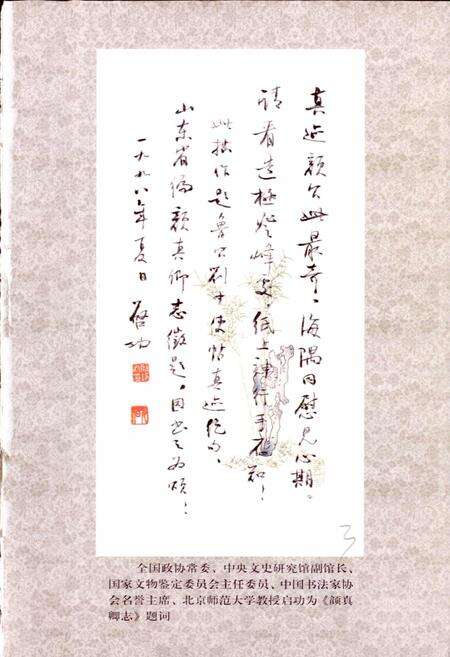 真迹颜公此最奇，海隅同慰见心期。
请看造极登峰处，纸上神行手不知！
此拙作题鲁公刘中使帖真迹绝句，
山东省编颜真卿志徵题，因书之为颂！
一九九八年夏日 启功
3
全国政协常委、中央文史研究馆副馆长、
国家文物鉴定委员会主任委员、中国书法家协
会名誉主席、北京师范大学教授启功为《颜真
卿志》题词